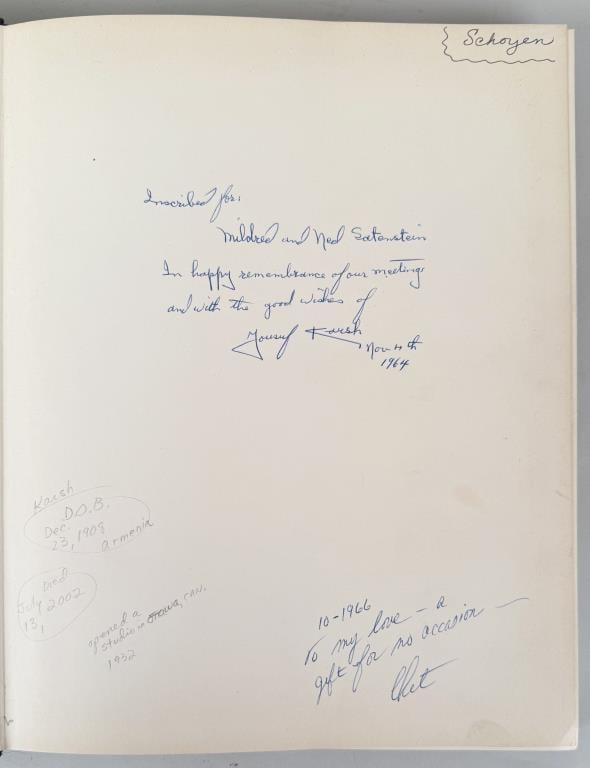 Schoyen
Inscribed for:
Mildred and Ned Satenstein
In happy remembrance of our meetings
and with the good wishes of
Yousuf Karsh
Nov 4th
1964
Karsh
D.O.B.
Dec.
23, 1908
Armenia
Died
July 2002
13,
opened a
studio in Ottawa, CAN.
1932
10-1966
To my love - a
gift for no occasion -
Chet